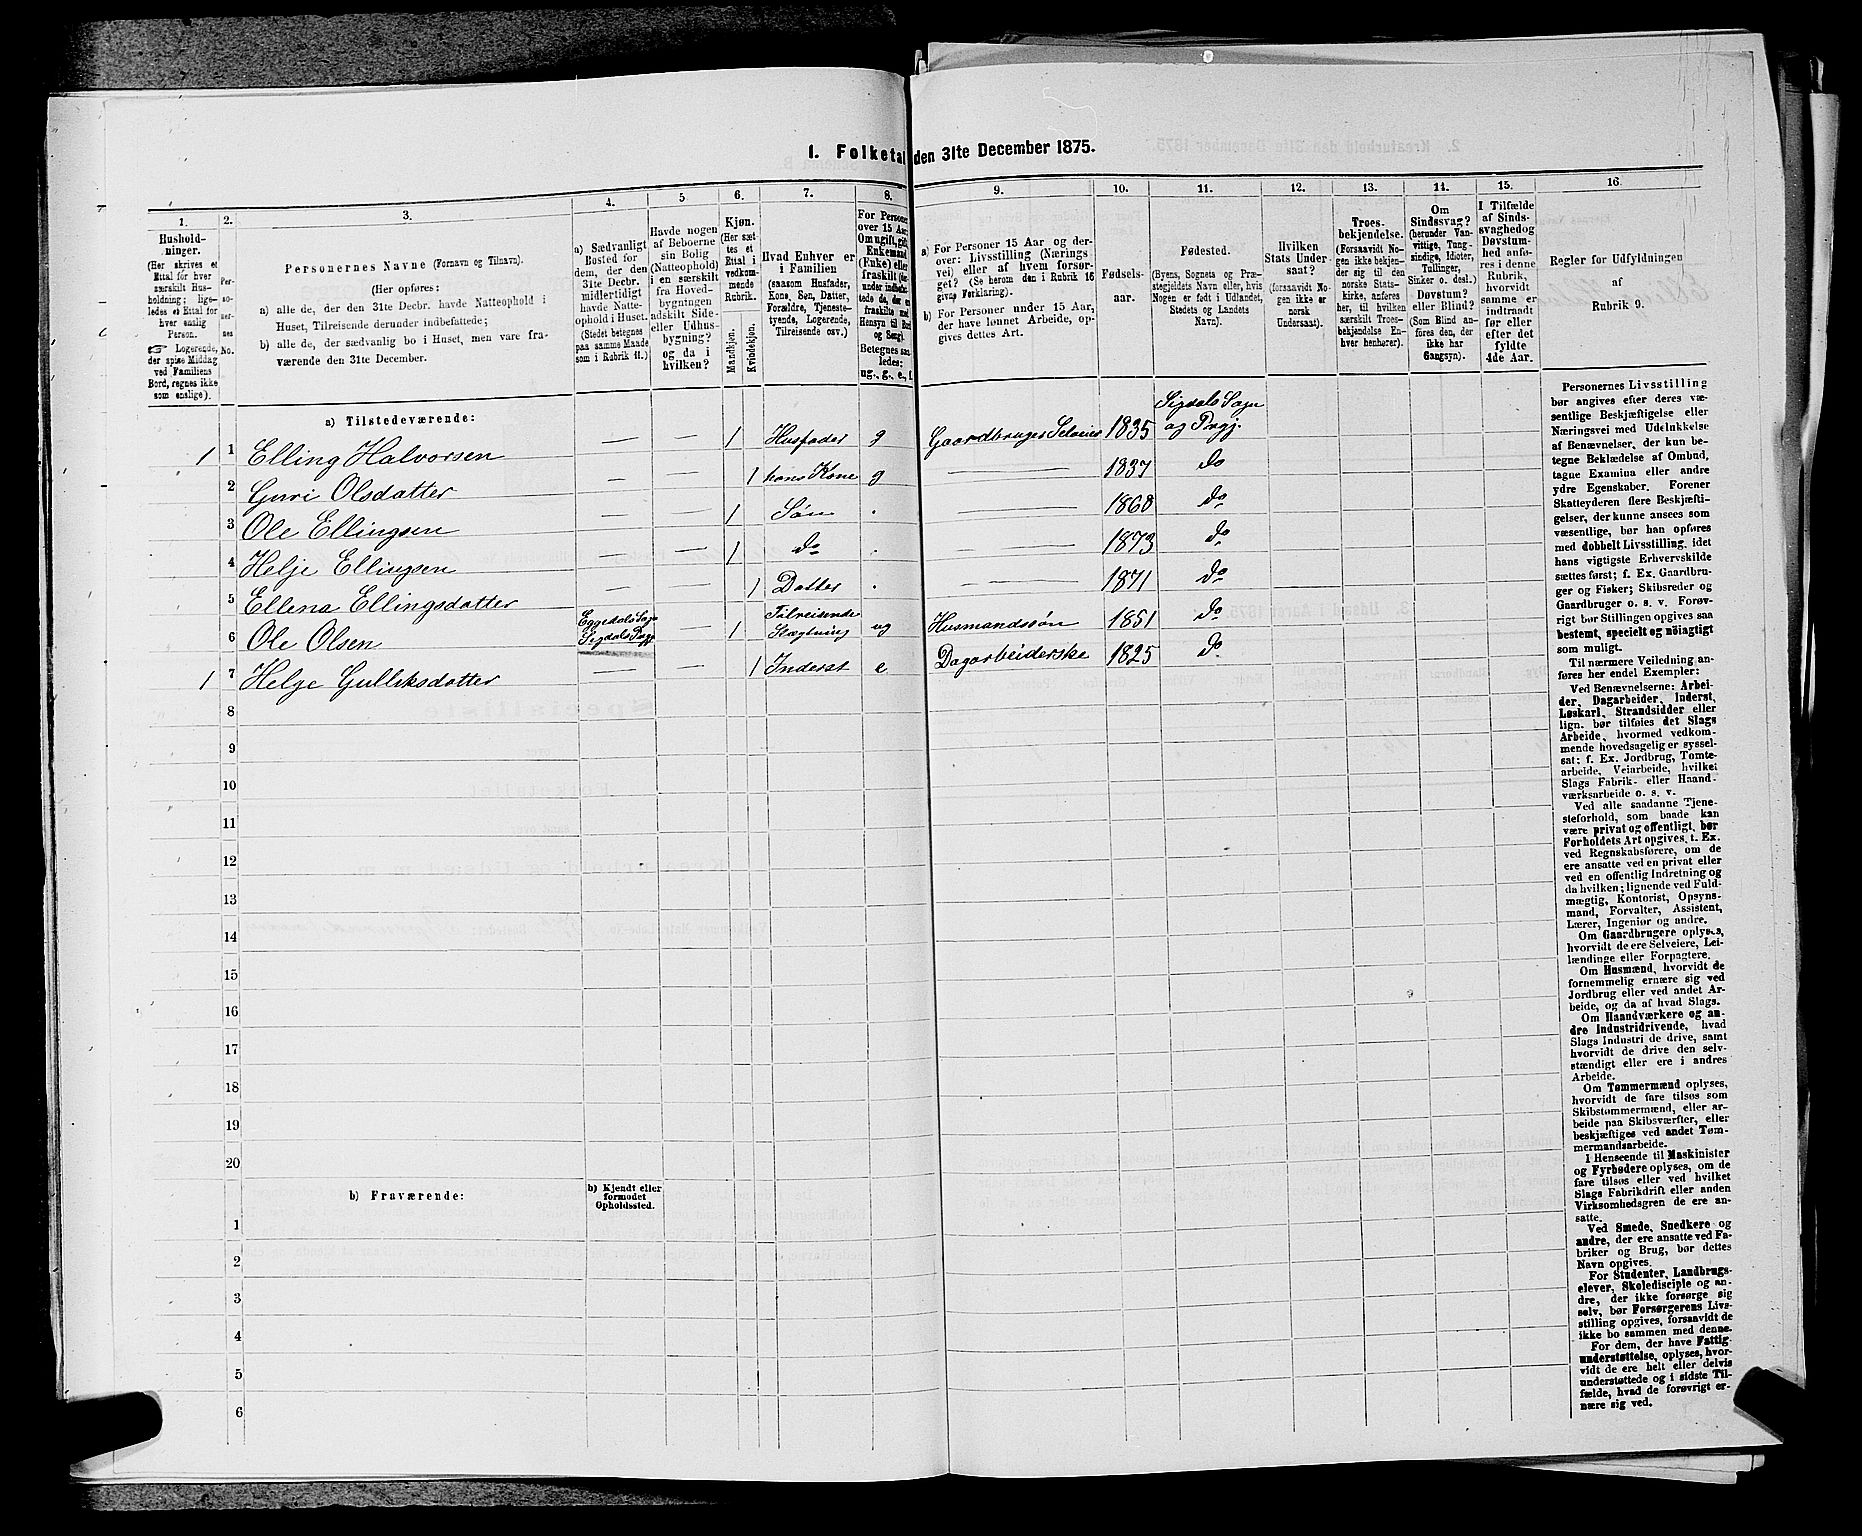 1. Folketal den 31te December 1875.
1.
Hushold-
ninger.
(Her skrives et
Ettal for hver
særskilt Hus-
holdning; lige-
ledes et Ettal for
hver enslig
Person.
☞ Logerende,
der spise Middag
ved Familiens
Bord, regnes ikke
som enslige).
2.
Per-
so-
ner-
nes
No.
3.
Personernes Navne (Fornavn og Tilnavn).
(Her opføres:
a) alle de, der den 31te Decbr. havde Natteophold i
Huset, Tilreisende derunder indbefattede;
b) alle de, der sædvanlig bo i Huset, men vare fra-
værende den 31te December.
4.
a) Sædvanligt
Bosted for
dem, der den
31te Decbr.
midlertidigt
havde Natte-
ophold i Huset.
(Stedet betegnes
paa samme Maade
som i Rubrik 11.)
5
Havde nogen
af Beboerne
sin Bolig
(Natteophold)
i en særskilt
fra Hoved-
bygningen
adskilt Side-
eller Udhus-
bygning?
og da i
hvilken?
6.
Kjøn.
(Her sæt-
tes et
Ettal i
vedkom-
mende
Rubrik.
Mandkjøn.
Kvindekjøn.
7.
Hvad Enhver er
i Familien
(saasom Husfader,
Kone, Søn, Datter,
Forældre, Tjeneste-
tyende, Logerende,
Tilreisende osv.)
8.
For Personer
over 15 Aar:
Om ugift, gift,
Enkemand
(Enke) eller
fraskilt
Betegnes saa-
ledes:
ug., g., e., f.
9.
a) For Personer 15 Aar og der-
over: Livsstilling (Nærings-
vei) eller af hvem forsør-
get? (Se herom den i Rubrik 16
givne Forklaring).
b) For Personer under 15 Aar,
der have lønnet Arbeide, op-
gives dettes Art.
10.
Fødsels-
aar.
11.
Fødested.
(Byens, Sognets og Præ-
stegjeldets Navn eller, hvis
Nogen er født i Udlandet,
Stedets og Landets
Navn).
12.
Hvilken
Stats Under-
saat?
(forsaavidt No-
gen ikke er
norsk
Undersaat).
13.
Troes-
bekjendelse.
(Forsaavidt No-
gen ikke bekjen-
der sig til den
norske Stats-
kirke, anføres
her, til hvilken
særskilt Troes-
bekjendelse En-
hver henhører).
14.
Om
Sindssvag?
(herunder Van-
vittige, Tung-
sindige, Idioter,
Tullinger,
Sinker o. desl.)
Døvstum?
eller Blind?
(Som Blind an-
føres den, der
ikke har
Gangsyn).
15.
I Tilfælde
af Sinds-
svaghed og
Døvstum-
hed anfø-
res i denne
Rubrik,
hvorvidt
samme er
indtraadt
før eller
efter det
fyldte
4de Aar.
16
Regler for Udfyldningen
af
Rubrik 9.
a) Tilstedeværende:
1 1 Elling Halvorsen — — 1 Husfader g Gaardbruger Selveier 1835 Sigdals Sogn
og Prgj.
2 Guri Olsdatter — — 1 hans Kone g — 1837 do
3 Ole Ellingsen — — 1 Søn . — 1860 do
4 Helje Ellingsen — — 1 do . — 1873 do
5 Ellena Ellingsdatter — — 1 Datter . — 1871 do
6 Ole Olsen Eggedals Sogn
Sigdals Prgj — 1 Tilreisende
Slægtning ug Husmandssøn 1851 do
1 7 Helge Gulliksdatter — — 1 Inderst e Dagarbeiderske 1825 do
8
9
10
11
12
13
14
15
16
17
18
19
20
b) Fraværende:
b) Kjendt eller
formodet
Opholdssted.
1
2
3
4
5
6
Personernes Livsstilling
bør angives efter deres væ-
sentlige Beskjæftigelse eller
Næringsvei med Udelukkelse
af Benævnelser, der kun be-
tegne Beklædelse af Ombud,
tagne Examina eller andre
ydre Egenskaber. Forener
Skatteyderen flere Beskjæfti-
gelser, der kunne ansees som
væsentlige, bør han opføres
med dobbelt Livsstilling, idet
hans vigtigste Erhvervskilde
sættes først; f. Ex. Gaardbru-
ger og Fisker; Skibsreder og
Gaardbruger o. s. v. Forøv-
rigt bør Stillingen opgives saa
bestemt, specielt og nöiagtigt
som muligt.
Til nærmere Veiledning an-
føres her endel Exempler:
Ved Benævnelserne: Arbei-
der, Dagarbeider, Inderst,
Løskarl, Strandsidder eller
lign. bør tilføies det Slags
Arbeide, hvormed vedkom-
mende hovedsagelig er syssel-
sat; f. Ex. Jordbrug, Tomte-
arbeide, Veiarbeide, hvilket
Slags Fabrik- eller Haand-
værksarbeide o. s. v.
Ved alle saadanne Tjene-
steforhold, som baade kan
være privat og offentligt, bør
Forholdets Art opgives, t. Ex.
ved Regnskabsførere, om de
ere ansatte ved en privat eller
ved en offentlig Indretning og
da hvilken; lignende ved Fuld-
mægtig, Kontorist, Opsyns-
mand, Forvalter, Assistent,
Lærer, Ingeniør og andre.
Om Gaardbrugere oplyses,
hvorvidt de ere Selveiere, Lei-
lændinge eller Forpagtere.
Om Husmænd, hvorvidt de
fornemmelig ernære sig ved
Jordbrug eller ved andet Ar-
beide, og da af hvad Slags.
Om Haandværkere og an-
dre Industridrivende, hvad
Slags Industri de drive, samt
hvorvidt de drive den selv-
stændigt eller ere i andres
Arbeide.
Om Tømmermænd oplyses,
hvorvidt de fare tilsøs som
Skibstømmermænd, eller ar-
beide paa Skibsværfter, eller
beskjæftiges ved andet Tøm-
mermandsarbeide.
I Henseende til Maskinister
og Fyrbødere oplyses, om de
fare tilsøs eller ved hvilket
Slags Fabrikdrift eller anden
Virksomhedsgren de ere an-
satte.
Ved Smede, Snedkere og
andre, der ere ansatte ved Fa-
briker og Brug, bør dettes
Navn opgives.
For Studenter, Landbrugs-
elever, Skoledisciple og an-
dre, der ikke forsørge sig
selv, bør Forsørgerens Livs-
stilling opgives, forsaavidt de
ikke bo sammen med denne.
For dem, der have Fattig-
understøttelse, oplyses, hvor-
vidt de ere helt eller delvis
understøttede og i sidste Til-
fælde, hvad de forøvrigt er-
nære sig ved.